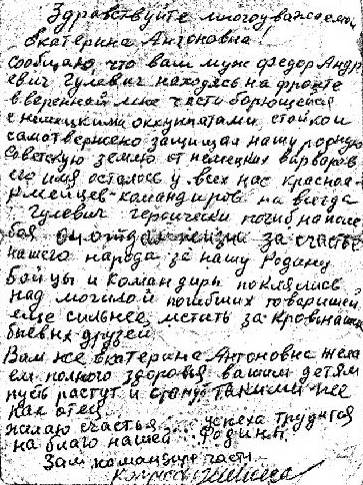 Здравствуйте многоуважаемая
Екатерина Антоновна
сообщаю что ваш муж Федор Андр
евич Гулевич находясь на фронте
вверенной мне части борющейся
с немецкими оккупатами стойко и
самотвержено защищая нашу родную
Советскую землю от немецких варваров
его имя осталось у всех нас красноа-
рмейцев командиров на всегда
Гулевич героически погиб на поле
боя он отдал жизнь за счастье
нашего народа за нашу Родину
Бойцы и командиры поклялись
над могилой погибших товарищей
еще сильнее мстить за кровь наших
боевых друзей
Вам же Екатерина Антоновна жела
ем полного здоровья вашим детям
пусть растут и станут такими же
как отец
желаю счастья успеха трудится
на благо нашей Родины
Зам командира части